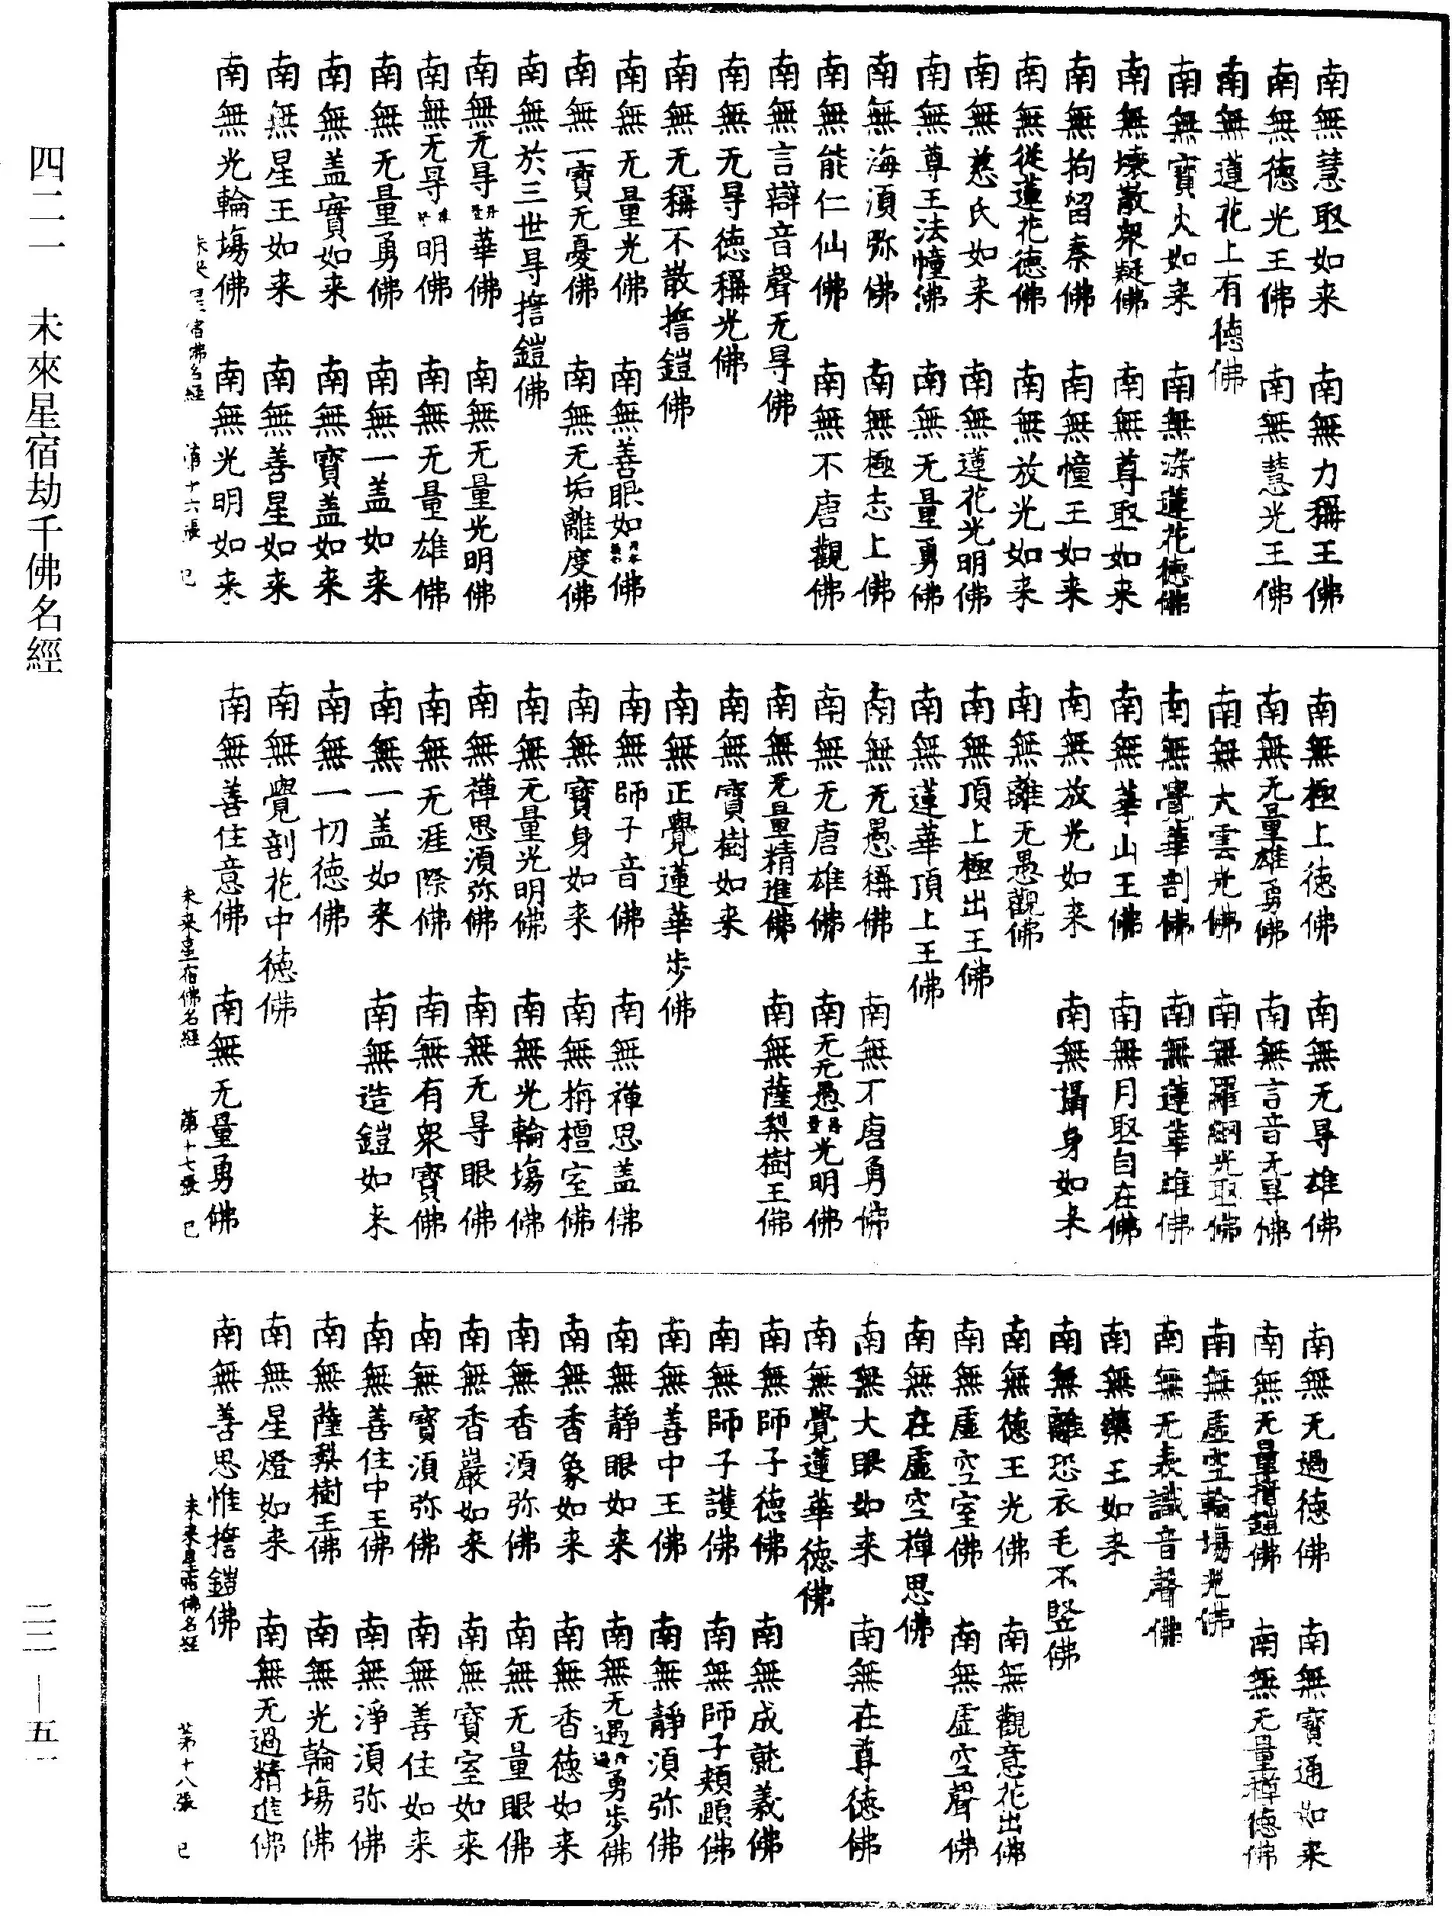 四二一　未來星宿劫千佛名經
南無慧取如来　南無力稱王佛
南無德光王佛　南無慧光王佛
南無蓮花上有德佛
南無寶火如来　南無染蓮花德佛
南無壞散衆疑佛　南無尊取如来
南無拘留秦佛　南無幢王如来
南無從蓮花德佛　南無放光如来
南無慈氏如来　南無蓮花光明佛
南無尊王法幢佛　南無无量勇佛
南無海湏弥佛　南無極志上佛
南無能仁仙佛　南無不唐觀佛
南無言辯音聲无㝵佛
南無无㝵德稱光佛
南無无稱不散擔鎧佛
南無无量光佛　南無善眼如佛
南無一寶无憂佛　南無无垢離度佛
南無於三世㝵擔鎧佛
南無无㝵華佛　南無无量光明佛
南無无㝵明佛　南無无量雄佛
南無无量勇佛　南無一盖如来
南無盖寶如来　南無寶盖如来
南無星王如来　南無善星如来
南無光輪塲佛　南無光明如来
未来星宿佛名經　第十六張　已
南無極上德佛　南無无㝵雄佛
南無无量雄勇佛　南無言音无㝵佛
南無大雲光佛　南無羅網光取佛
南無覺華剖佛　南無蓮華雄佛
南無華山王佛　南無月取自在佛
南無放光如来　南無攝身如来
南無離无愚觀佛
南無頂上極出王佛
南無蓮華頂上王佛
南無无愚稱佛　南無不唐勇佛
南無无唐雄佛　南無无愚光明佛
南無无量精進佛　南無薩梨樹王佛
南無寶樹如来
南無正覺蓮華步佛
南無師子音佛　南無禪思盖佛
南無寶身如来　南無栴檀室佛
南無无量光明佛　南無光輪塲佛
南無禪思湏弥佛　南無无㝵眼佛
南無无涯際佛　南無有衆寶佛
南無一盖如来　南無造鎧如来
南無一切德佛
南無覺剖花中德佛
南無善住意佛　南無无量勇佛
未来星宿佛名經　第十七張　已
南無无過德佛　南無寶通如来
南無无量擔鎧佛　南無无量禪德佛
南無虛空輪塲光佛
南無无表識音聲佛
南無藥王如来
南無離恐衣毛不竪佛
南無德王光佛　南無觀意花出佛
南無虛空室佛　南無虛空聲佛
南無在虛空禪思佛
南無大眼如来　南無在尊德佛
南無覺蓮華德佛
南無師子德佛　南無成就義佛
南無師子護佛　南無師子頰頤佛
南無善中王佛　南無靜湏弥佛
南無靜眼如来　南無无過勇步佛
南無香象如来　南無香德如来
南無香湏弥佛　南無无量眼佛
南無香巖如来　南無寶室如来
南無寶湏弥佛　南無善住如来
南無善住中王佛　南無淨湏弥佛
南無薩梨樹王佛　南無光輪塲佛
南無星燈如来　南無无過精進佛
南無善思惟擔鎧佛
未来星宿佛名經　第十八張　已
二二—五一